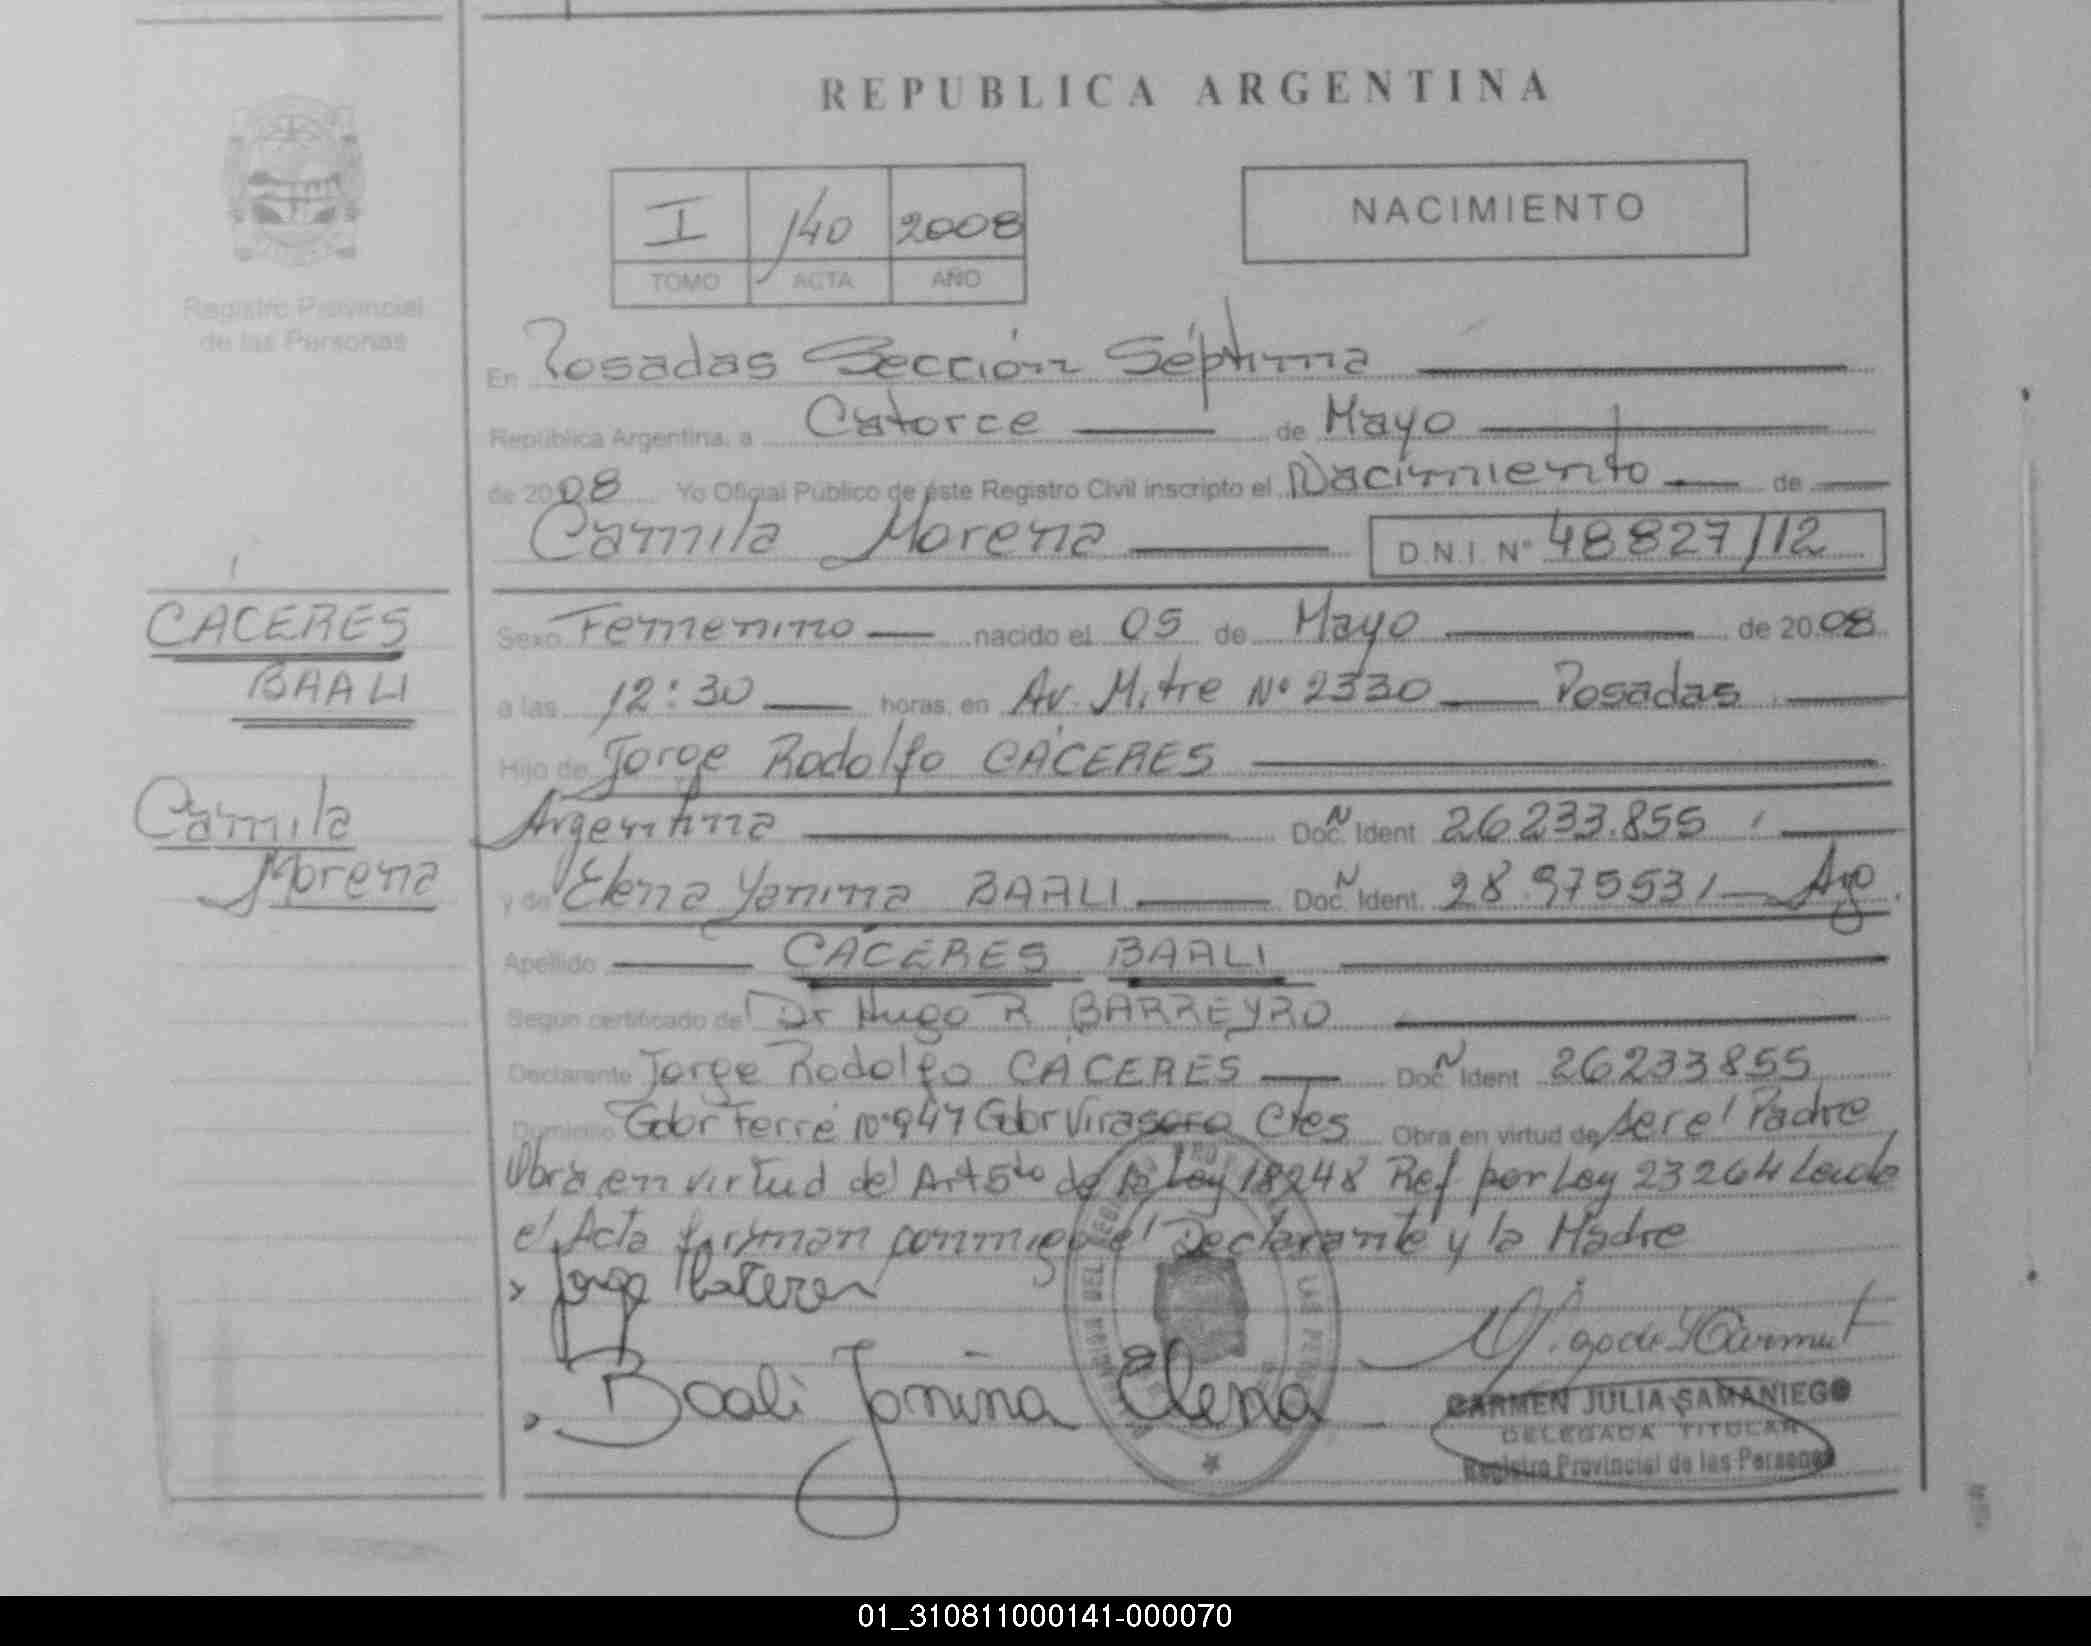 REPUBLICA ARGENTINA
I 140 2008
TOMO ACTA AÑO
NACIMIENTO
Registro Provincial
de las Personas
En Posadas Sección Séptima
República Argentina, a Catorce de Mayo
de 2008 Yo Oficial Público de éste Registro Civil inscripto el Nacimiento de
Camila Morena D.N.I. Nº 48827112
CACERES
BAALI
Camila
Morena
Sexo Femenino nacido el 05 de Mayo de 2008
a las 12:30 horas, en Av. Mitre Nº 2330 Posadas
Hijo de Jorge Rodolfo CÁCERES
Argentina Doc. Ident 26233.855
y de Elena Yanina BAALI Doc. Ident. 28.975531 Arg.
Apellido CÁCERES BAALI
Según certificado de Dr Hugo R BARREYRO
Declarante Jorge Rodolfo CÁCERES Doc. Ident 26233855
Domicilio Gdor Ferré Nº 947 Gdor Virasoro Ctes Obra en virtud de ser el Padre
Obra en virtud del Art 5to de la Ley 18248 Ref por Ley 23264 Leida
el Acta firman conmigo el Declarante y la Madre
Baali Yanina Elena
CARMEN JULIA SAMANIEGO
DELEGADA TITULAR
Registro Provincial de las Personas
01_310811000141-000070